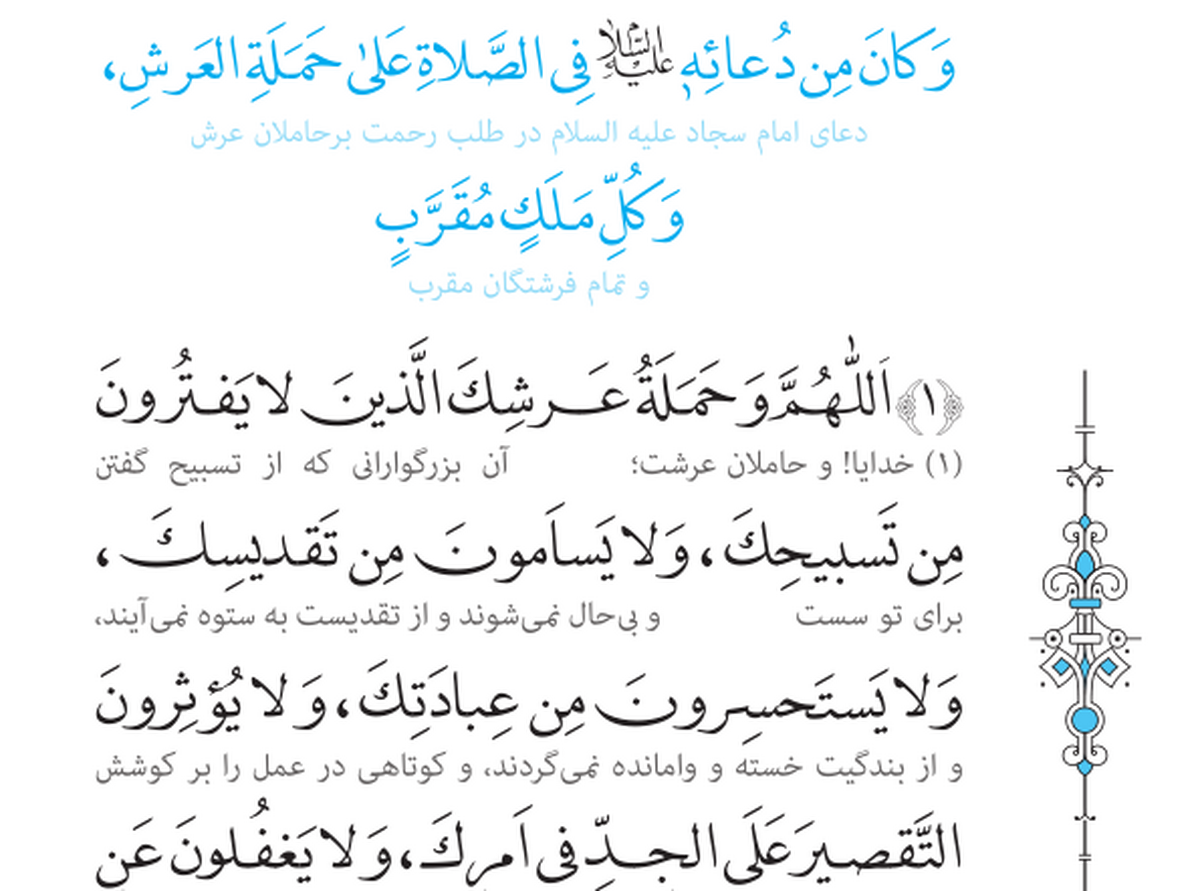 وَكانَ مِن دُعائِهِ عليه السلام فِي الصَّلاةِ عَلىٰ حَمَلَةِ العَرشِ،
دعای امام سجاد علیه السلام در طلب رحمت برحاملان عرش
وَكُلِّ مَلَكٍ مُقَرَّبٍ
و تمام فرشتگان مقرب
﴿١﴾ اَللّٰهُمَّ وَ حَمَلَةُ عَرشِكَ الَّذينَ لا يَفتُرونَ
(۱) خدایا! و حاملان عرشت؛ آن بزرگوارانی که از تسبیح گفتن
مِن تَسبيحِكَ، وَلا يَساَمونَ مِن تَقديسِكَ،
برای تو سست و بی‌حال نمی‌شوند و از تقدیست به ستوه نمی‌آیند،
وَلا يَستَحسِرونَ مِن عِبادَتِكَ، وَ لا يُؤثِرونَ
و از بندگیت خسته و وامانده نمی‌گردند، و کوتاهی در عمل را بر کوشش
التَّقصيرَ عَلَى الجِدِّ في اَمرِكَ، وَ لا يَغفُلونَ عَنِ